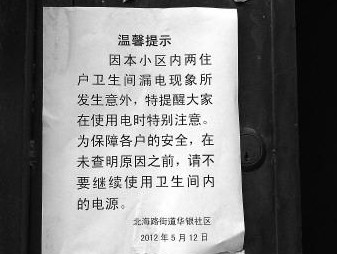 温馨提示
因本小区内两住
户卫生间漏电现象所
发生意外，特提醒大家
在使用电时特别注意。
为保障各户的安全，在
未查明原因之前，请不
要继续使用卫生间内
的电源。
北海路街道华银社区
2012年5月12日